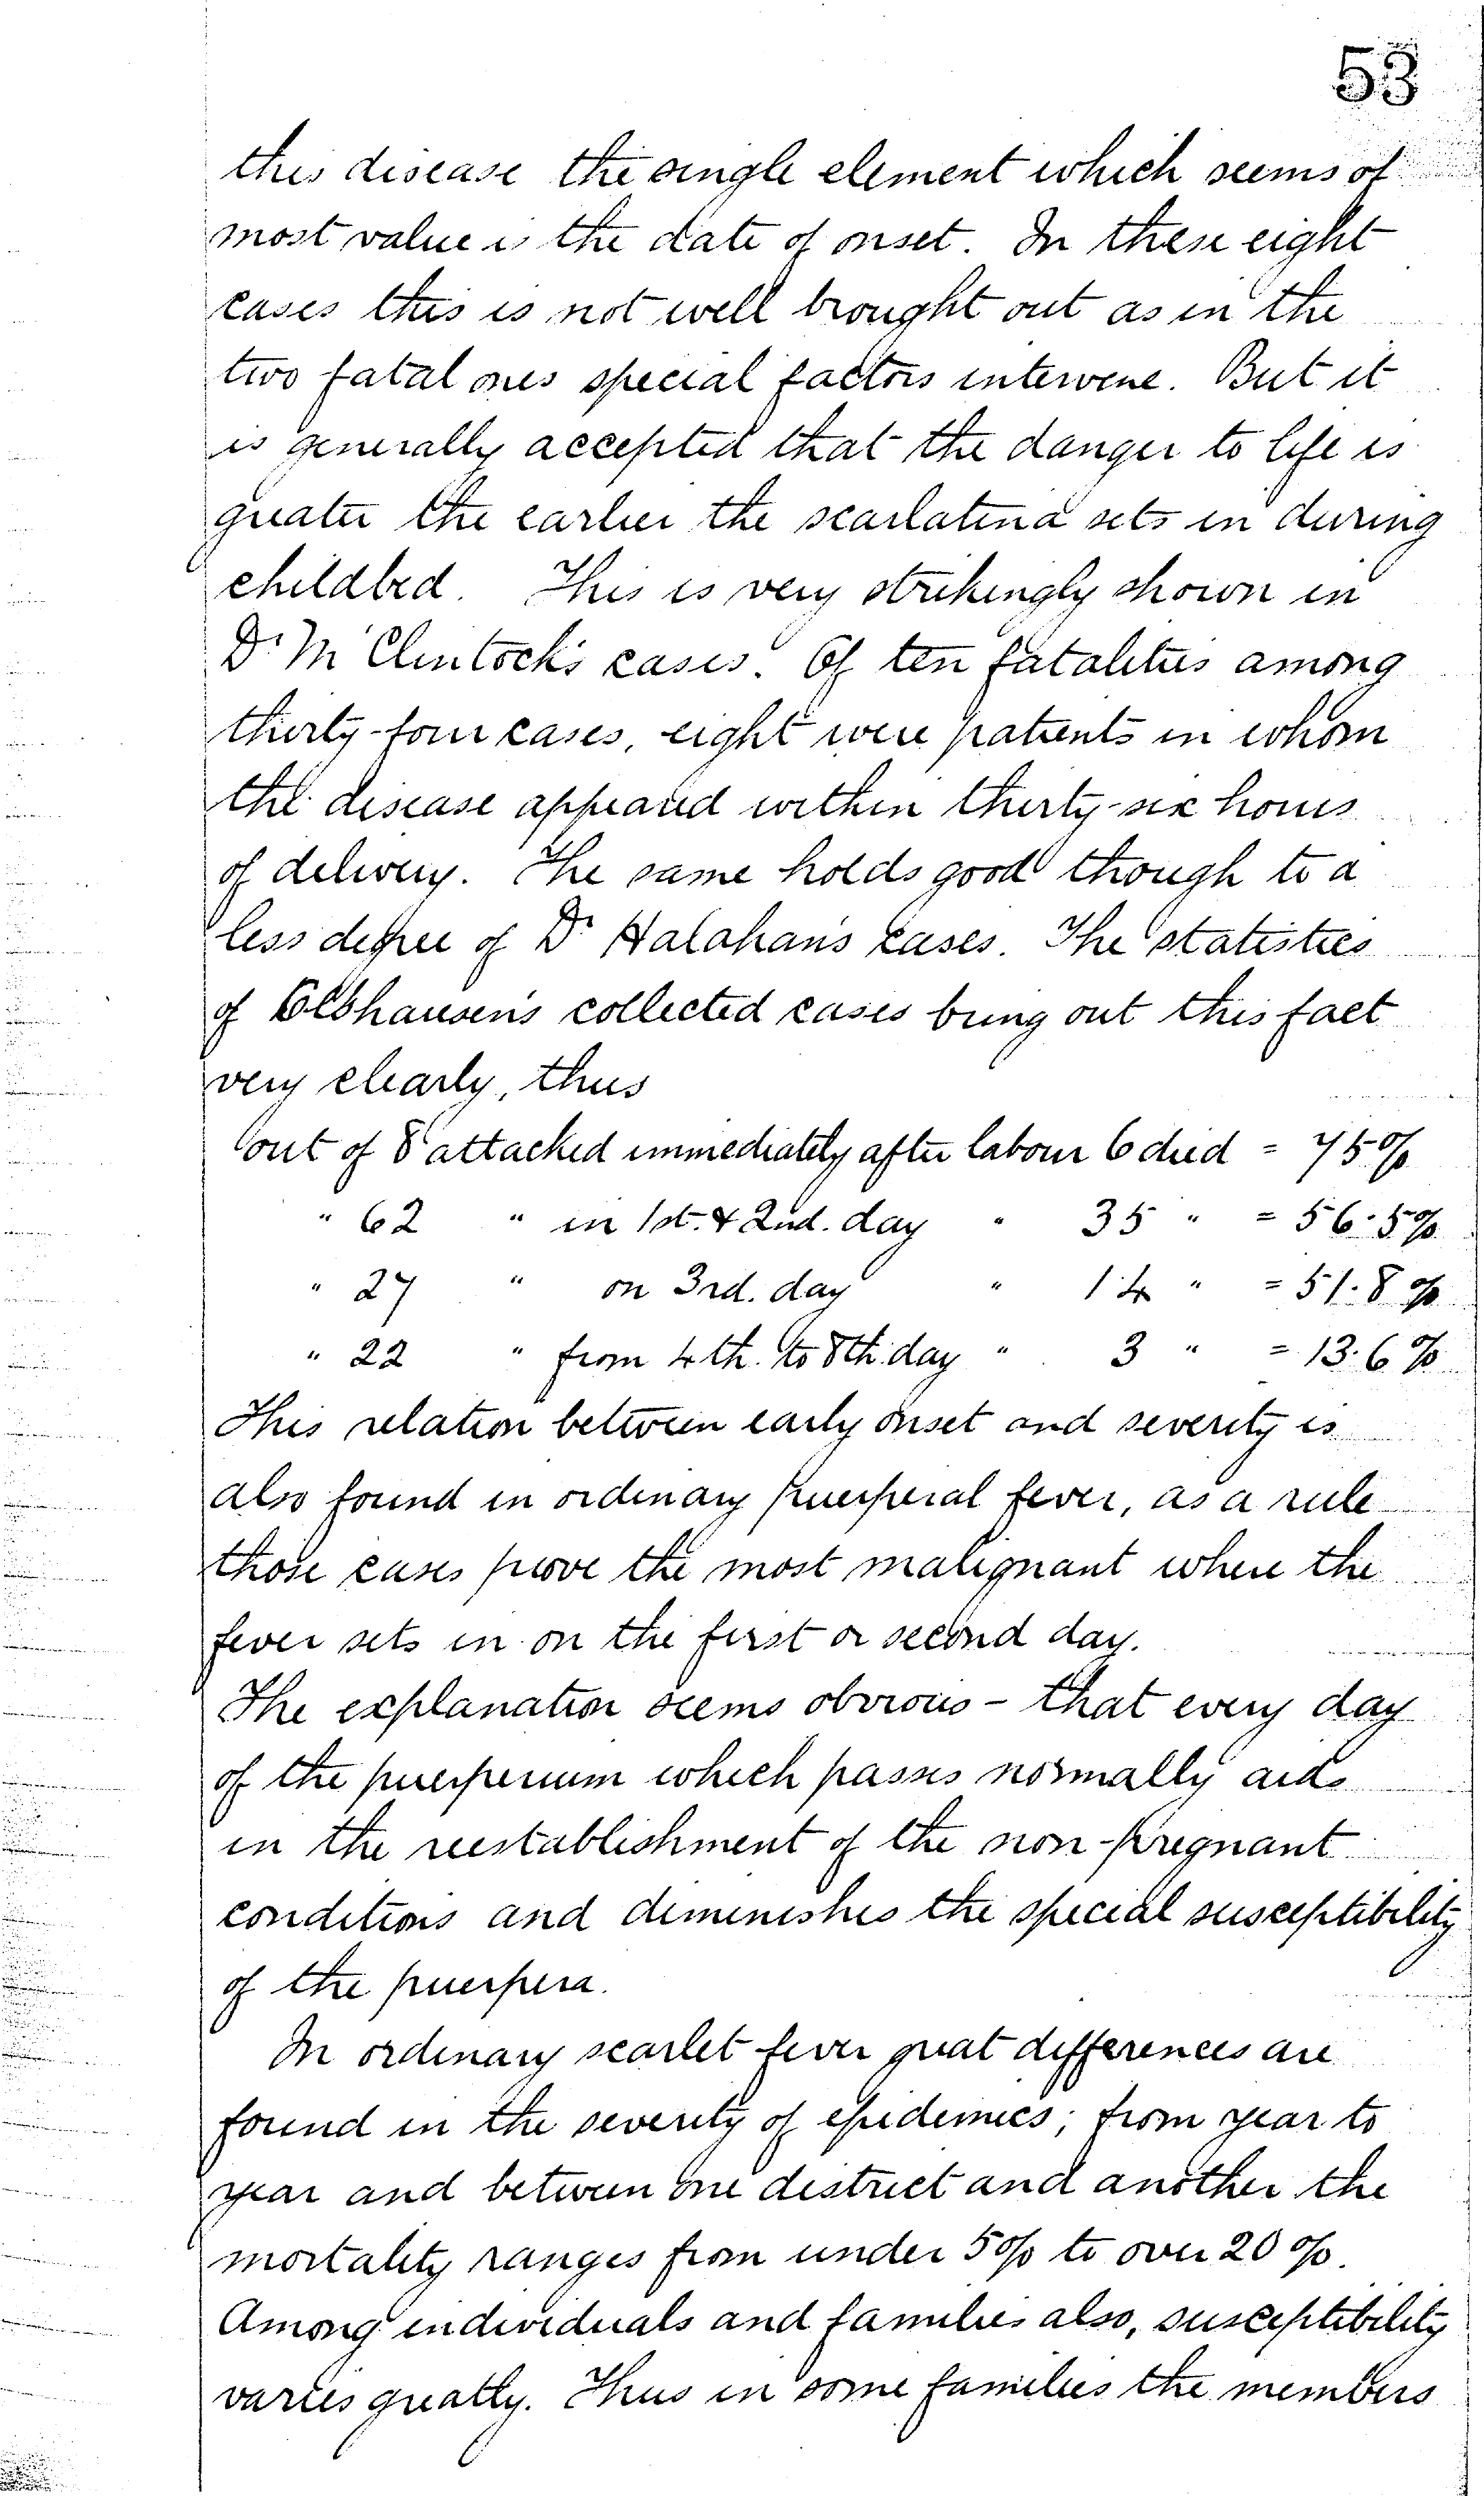 53
this disease the single element which seems of
most value is the date of onset. In these eight
cases this is not well brought out as in the
two fatal ones special factors intervene. But it
is generally accepted that the danger to life is
greater the earlier the scarlatina sets in during
childbed. This is very strikingly shown in
Dr. McClintock's cases. Of ten fatalities among
thirty-four cases, eight were patients in whom
the disease appeared within thirty-six hours
of delivery. The same holds good though to a
less degree of Dr Halahan's cases. The statistics
of Olshausen's collected cases bring out this fact
very clearly, thus
out of 8 attacked immediately after labour 6 died = 75%
" 62 " in 1st. & 2nd. day " 35 " = 56.5%
" 27 " on 3rd. day " 14 " = 51.8%
" 22 " from 4th. to 8th. day " 3 " = 13.6%
This relation between early onset and severity is
also found in ordinary puerperal fever, as a rule
those cases prove the most malignant where the
fever sets in on the first or second day.
The explanation seems obvious - that every day
of the puerperium which passes normally aids
in the reestablishment of the non-pregnant
conditions and diminishes the special susceptibility
of the puerpera.
In ordinary scarlet fever great differences are
found in the severity of epidemics; from year to
year and between one district and another the
mortality ranges from under 5% to over 20%.
Among individuals and families also, susceptibility
varies greatly. Thus in some families the members